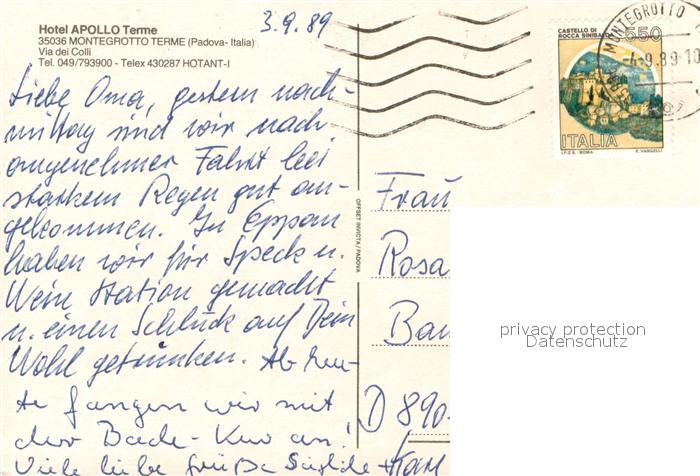 3.9.89
Hotel APOLLO Terme
35036 MONTEGROTTO TERME (Padova- Italia)
Via dei Colli
Tel. 049/793900 - Telex 430287 HOTANT-I
Liebe Oma, gestern nach-
mittag sind wir nach
angenehmer Fahrt bei
starkem Regen gut an-
gekommen. In Eppan
haben wir für Speck u.
Wein Station gemacht
u. einen Schluck auf Dein
Wohl getrunken. Ab heu-
te fangen wir mit
der Bade-Kur an!
Viele liebe Grüße
OFFSET INVICTA / PADOVA
MONTEGROTTO
-4.9.89-10
CASTELLO DI
ROCCA SINIBALDA
550
ITALIA
I.P.Z.S. - ROMA
E. VANGELLI
Frau
Rosa
Bau
D 890
privacy protection
Datenschutz